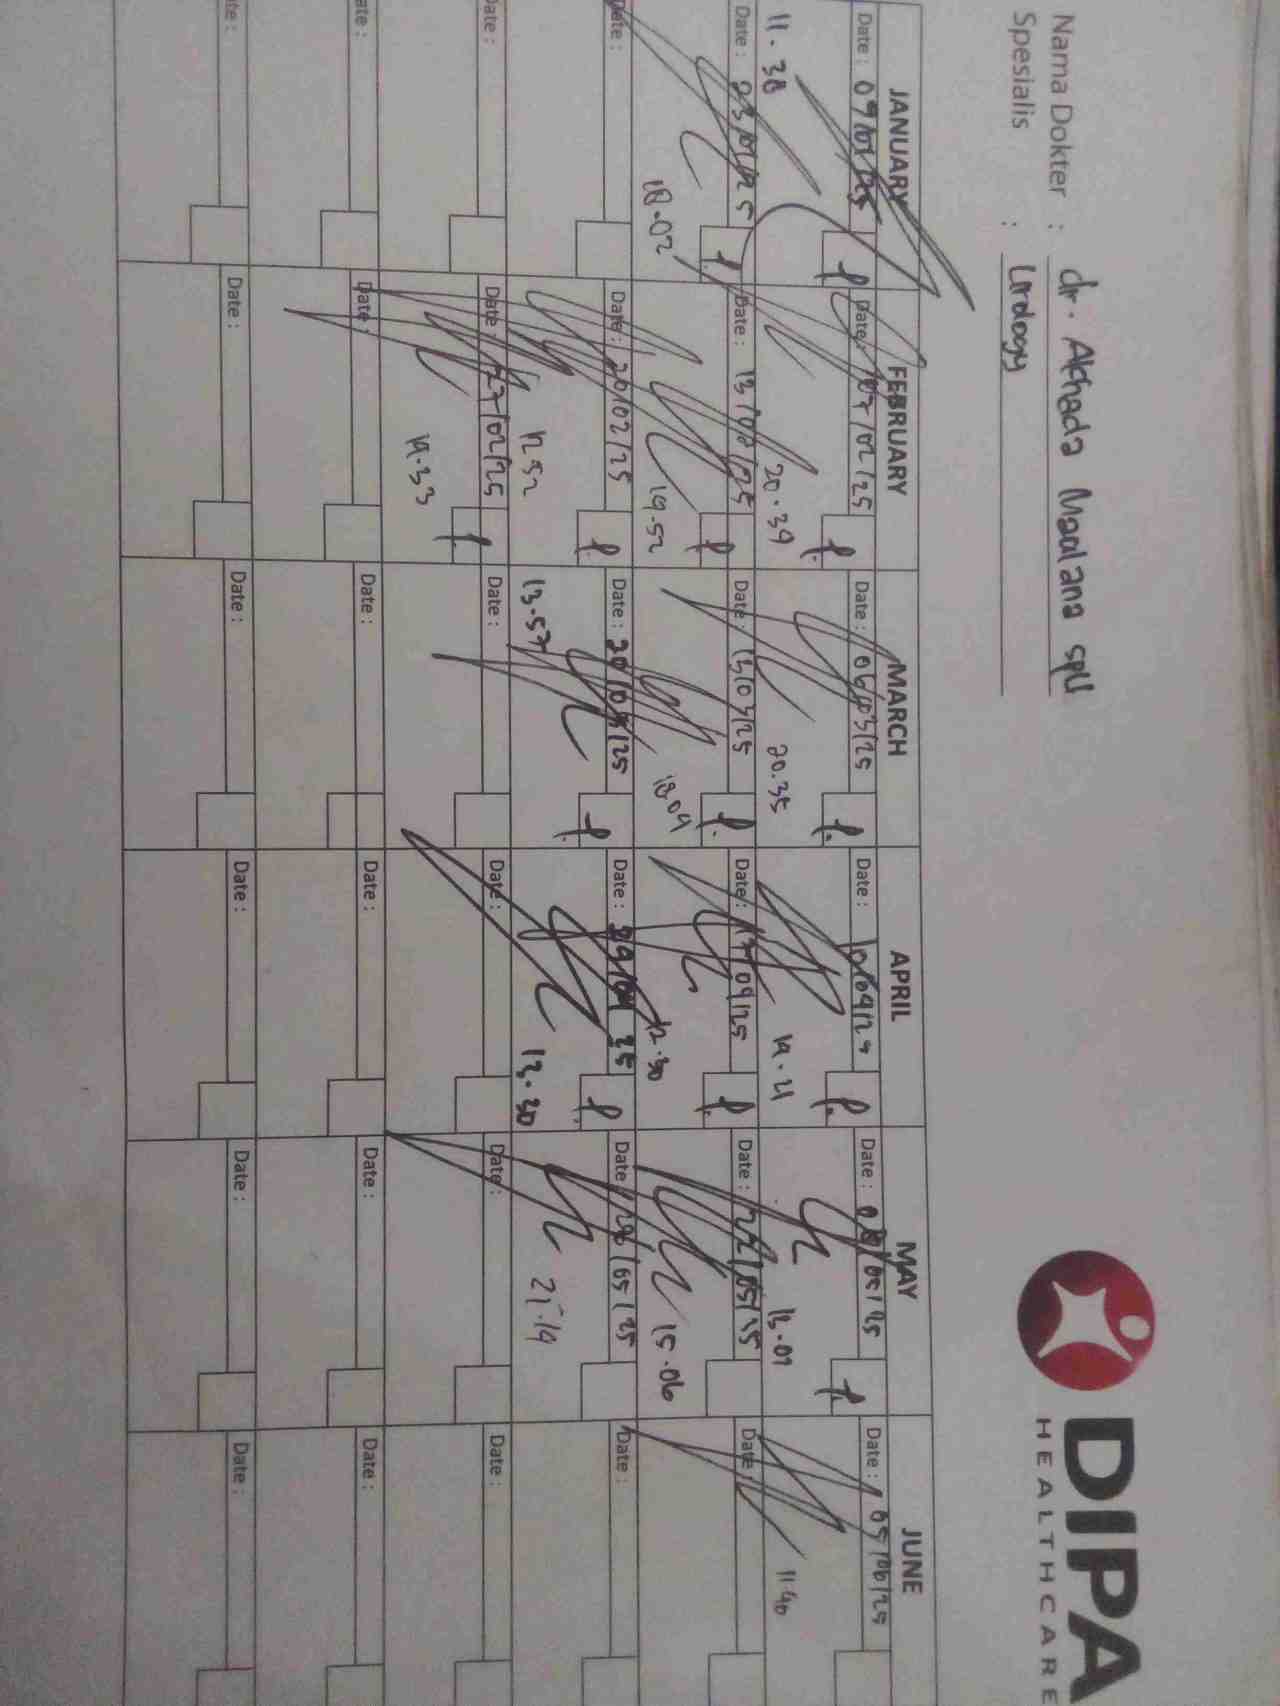 DIPA
HEALTHCARE
Nama Dokter : dr. Akhada Maulana SpU
Spesialis : Urology
JANUARY FEBRUARY MARCH APRIL MAY JUNE
Date : 09/01/25 Date : 07/02/25 Date : 06/03/25 Date : Date : 08/05/25 Date : 05/06/25
11.38 20.39 20.35 13.01 11.40
Date : 23/01/25 Date : 13/02/25 Date : 13/03/25 Date : 17/04/25 Date : 22/05/25 Date :
18.02 19.52 18.04 12.30 15.06
Date : Date : 20/02/25 Date : 20/03/25 Date : Date : Date :
12.52 13.57 13.30 21.19
Date : Date : 27/02/25 Date : Date : Date : Date :
19.33
Date : Date : Date : Date : Date : Date :
Date : Date : Date : Date : Date : Date :